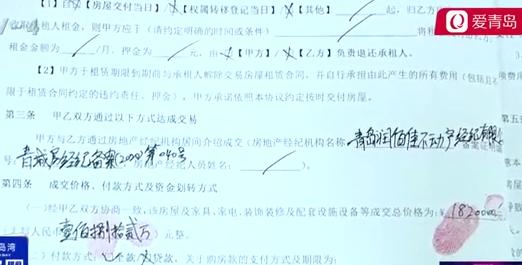 爱青岛
【1】自【房屋交付当日】/【权属转移登记当日】【其他】 起，归乙方
租人租金，则甲方应于（请约定明确的时间或条件） 将
租金金额为 / 元/月，押金为 / 元，由【甲方】/【乙方】负责退还承租人。
【2】甲方于租赁期限到期前与承租人解除交易房屋租赁合同，并自行承担由此产生的所有费用（包括
限于租赁合同约定的违约责任、押金），甲方承诺依照本协议约定按时交付房屋。
第三条 甲乙双方通过以下方式达成交易
甲方与乙方通过房地产经纪机构居间介绍成交（房地产经纪机构名称 青岛润佰佳不动产经纪有限
号：青城房经纪备案(200)第040号 产经纪人员姓名： ）。
第四条 成交价格、付款方式及资金划转方式
（一）经甲乙双方协商一致，该房屋及家具、家电、装饰装修及配套设施设备等成交总价格为： 1820000
人民 壹佰捌拾贰万 元整。
（二）付款方式： 款 贷款，关于购房款的支付方式及期限为：
岛湾